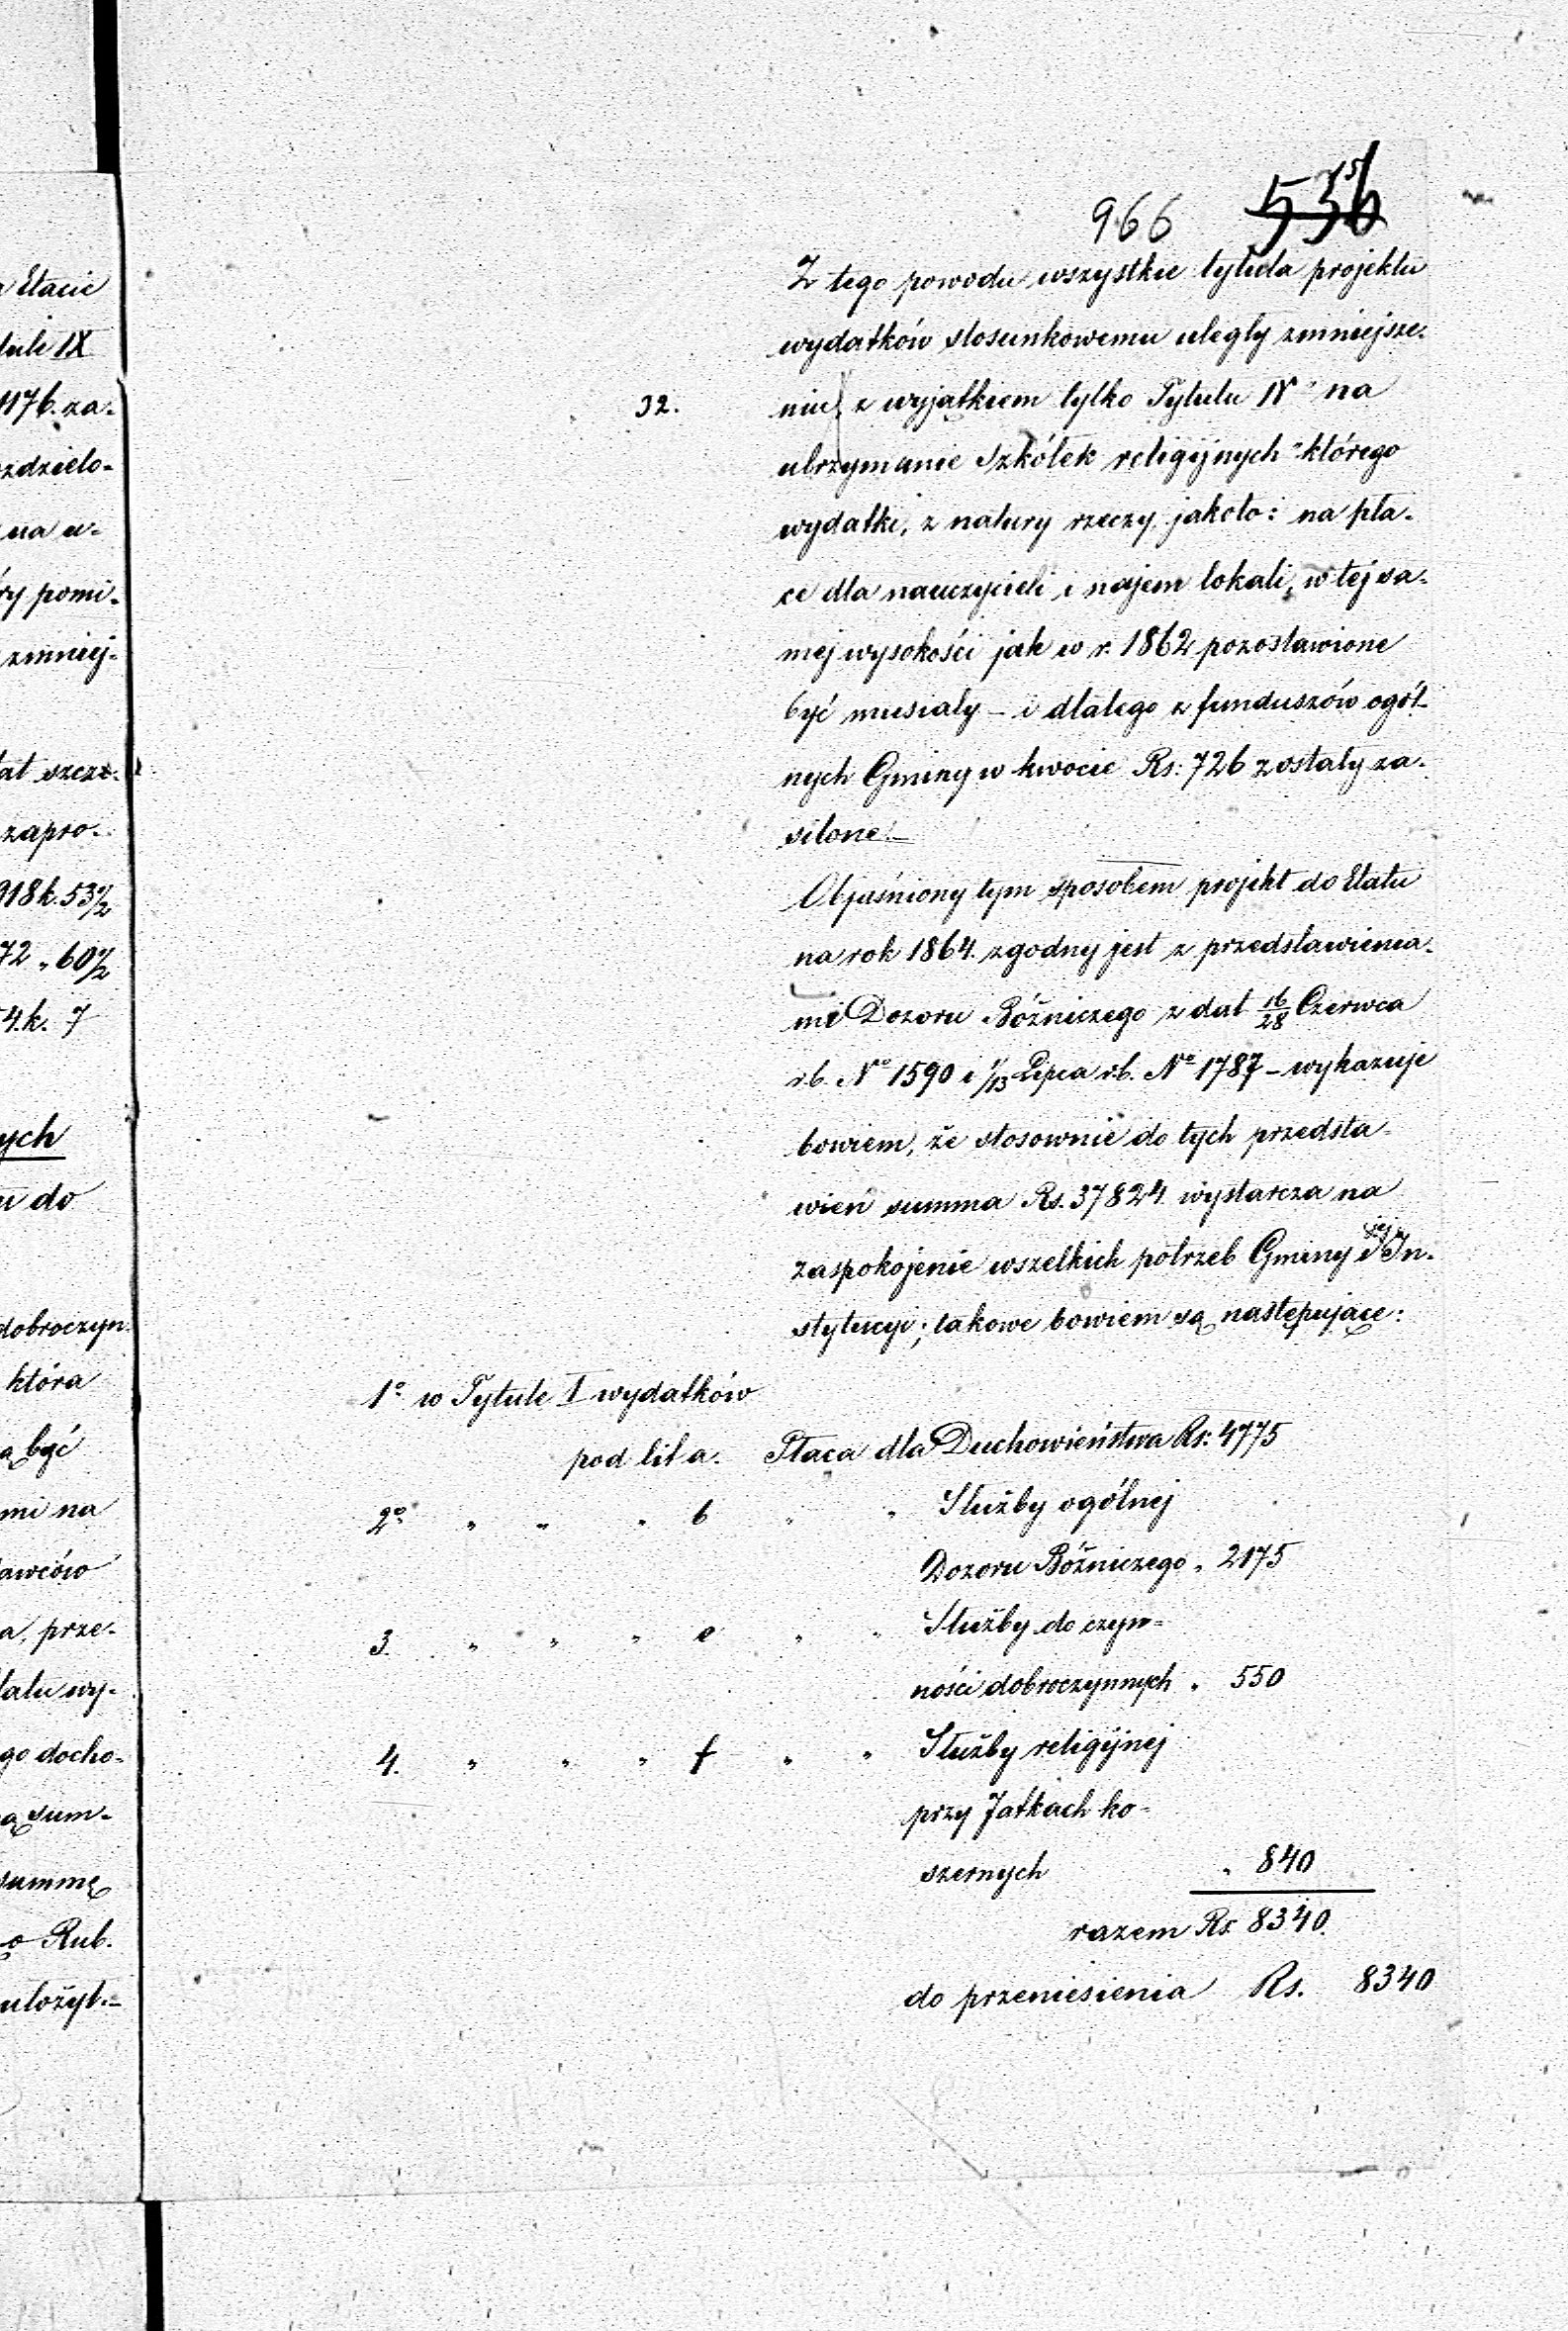 966 536
Z tego powodu wszystkie tytuła projektu
wydatków stosunkowemu uległy zmniejsze-
32. niu, z wyjątkiem tylko Tytułu IV "na
utrzymanie szkółek religijnych" którego
wydatki, z natury rzeczy jakoto: na pła-
ce dla nauczycieli i najem lokali, w tej sa-
mej wysokości jak w r. 1862 pozostawione
być musiały – i dlatego z funduszów ogól-
nych Gminy w kwocie Rs: 726 zostały za-
silone.–
Objaśniony tym sposobem projekt do Etatu
na rok 1864. zgodny jest z przedstawienia-
mi Dozoru Bóżniczego z dat 16/28 Czerwca
r.b. No 1590 i 1/13 Lipca r.b. No 1787 – wykazuje
bowiem, że stosownie do tych przedsta-
wień summa Rs. 37824 wystarcza na
zaspokojenie wszelkich potrzeb Gminy i jej In-
stytucyi; takowe bowiem są następujące:
1o w Tytule I wydatków
pod lit a. Płaca dla Duchowieństwa Rs: 4775
2o " " " b " " Służby ogólnej
Dozoru Bóżniczego " 2175
3. " " " e " " Służby do czyn-
ności dobroczynnych " 550
4. " " " f " " Służby religijnej
przy Jatkach ko-
szernych " 840
razem Rs. 8340.
do przeniesienia Rs. 8340
Etacie
tule IX
1176. za-
ozdzielo-
na u-
ry pomi-
zmniej-
tat szcze-
zapro-
918 k. 53 1/2
72 " 60 1/2
4. k. 7
ych
u do
dobroczyn-
która
ą być
mi na
awców
a, prze-
tatu wy-
go docho-
ą sum-
summę
o Rub.
ułożył.–